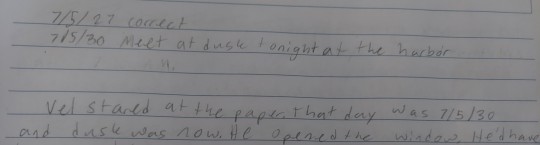 7/5/27 correct
7/5/30 Meet at dusk tonight at the harbor
H.
Vel stared at the paper. That day was 7/5/30
and dusk was now. He opened the window. He'd have